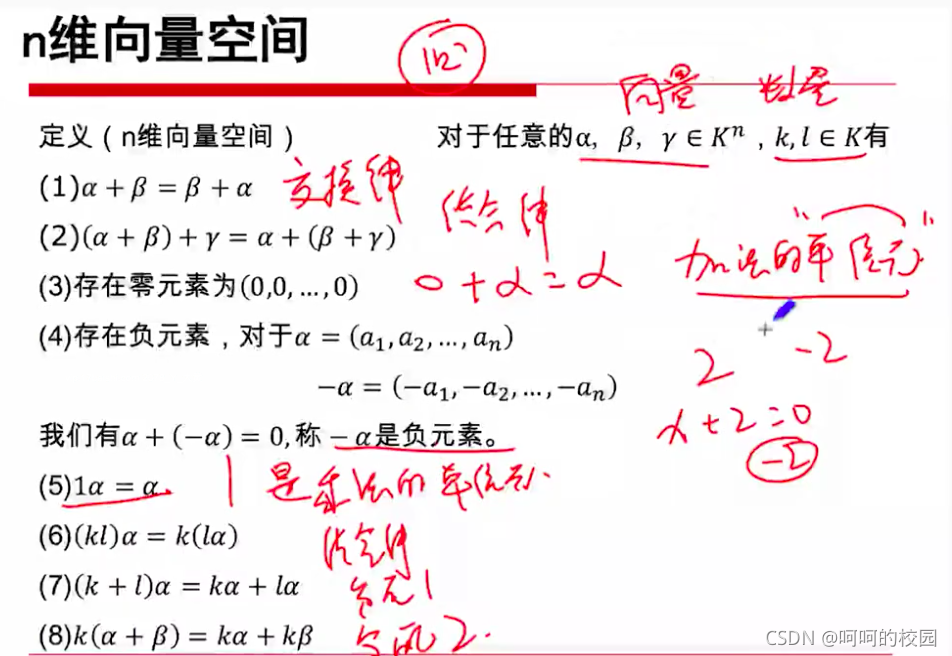 n维向量空间
向量 数量
定义（n维向量空间） 对于任意的α, β, γ ∈ Kⁿ , k, l ∈ K有
(1)α + β = β + α 交换律
(2)(α + β) + γ = α + (β + γ) 结合律
(3)存在零元素为(0,0, … ,0) 0 + α = α "加法的单位元"
(4)存在负元素，对于α = (a₁, a₂, … , aₙ) 2 -2
−α = (−a₁, −a₂, … , −aₙ) x + 2 = 0
我们有α + (−α) = 0,称 −α是负元素。 -2
(5)1α = α 1是乘法的单位元.
(6)(kl)α = k(lα) 结合律
(7)(k + l)α = kα + lα 分配1
(8)k(α + β) = kα + kβ 分配2.
CSDN @呵呵的校园